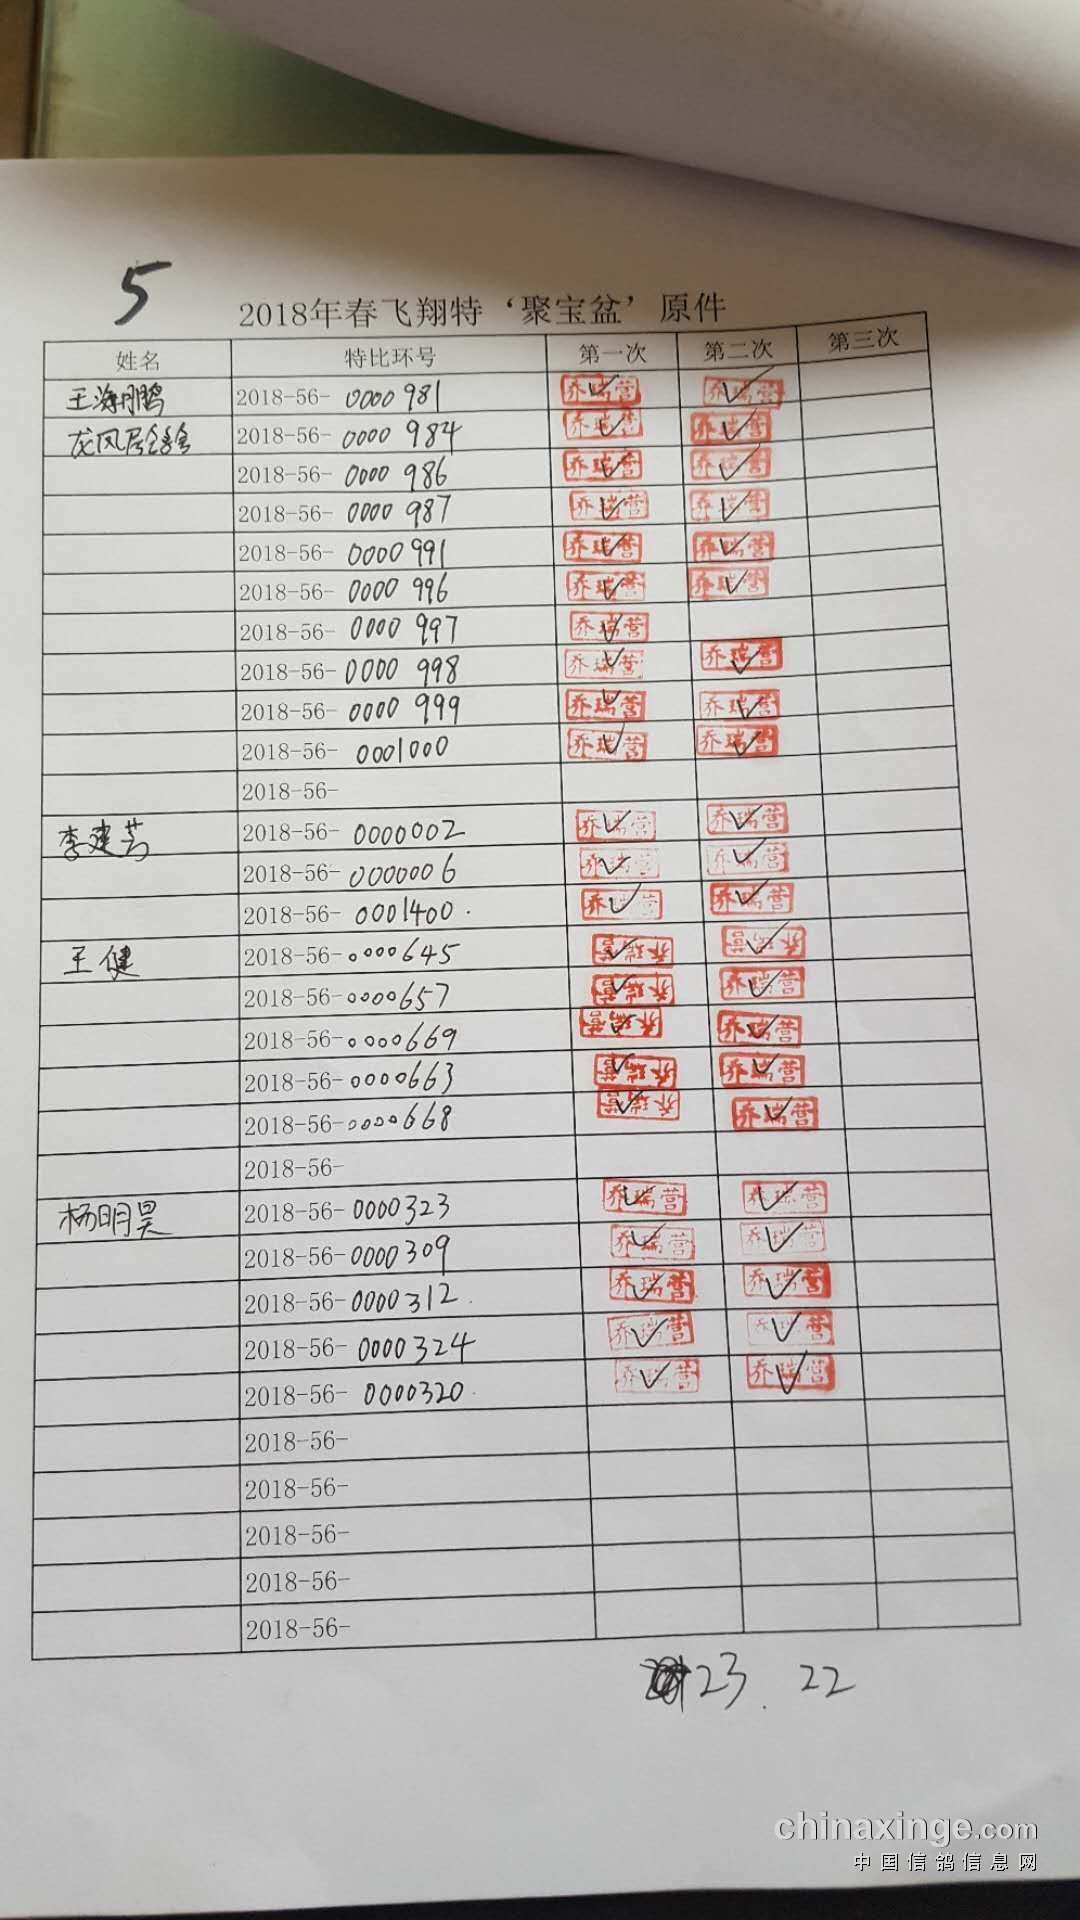 5
2018年春飞翔特‘聚宝盆’原件
姓名 特比环号 第一次 第二次 第三次
王海鹏 2018-56- 0000981 乔瑞营 乔瑞营
龙凤居 2018-56- 0000984 乔瑞营 乔瑞营
2018-56- 0000986 乔瑞营 乔瑞营
2018-56- 0000987 乔瑞营 乔瑞营
2018-56- 0000991 乔瑞营 乔瑞营
2018-56- 0000996 乔瑞营 乔瑞营
2018-56- 0000997 乔瑞营
2018-56- 0000998 乔瑞营 乔瑞营
2018-56- 0000999 乔瑞营 乔瑞营
2018-56- 0001000 乔瑞营 乔瑞营
2018-56-
李建芳 2018-56- 0000002 乔瑞营 乔瑞营
2018-56- 0000006 乔瑞营 乔瑞营
2018-56- 0001400. 乔瑞营 乔瑞营
王健 2018-56-0000645 乔瑞营 乔瑞营
2018-56-0000657 乔瑞营 乔瑞营
2018-56-0000669 乔瑞营 乔瑞营
2018-56-0000663 乔瑞营 乔瑞营
2018-56-0000668 乔瑞营 乔瑞营
2018-56-
杨明昊 2018-56-0000323 乔瑞营 乔瑞营
2018-56-0000309 乔瑞营 乔瑞营
2018-56-0000312. 乔瑞营 乔瑞营
2018-56- 0000324 乔瑞营 乔瑞营
2018-56- 0000320. 乔瑞营 乔瑞营
2018-56-
2018-56-
2018-56-
2018-56-
2018-56-
23. 22
chinaxinge.com
中国信鸽信息网